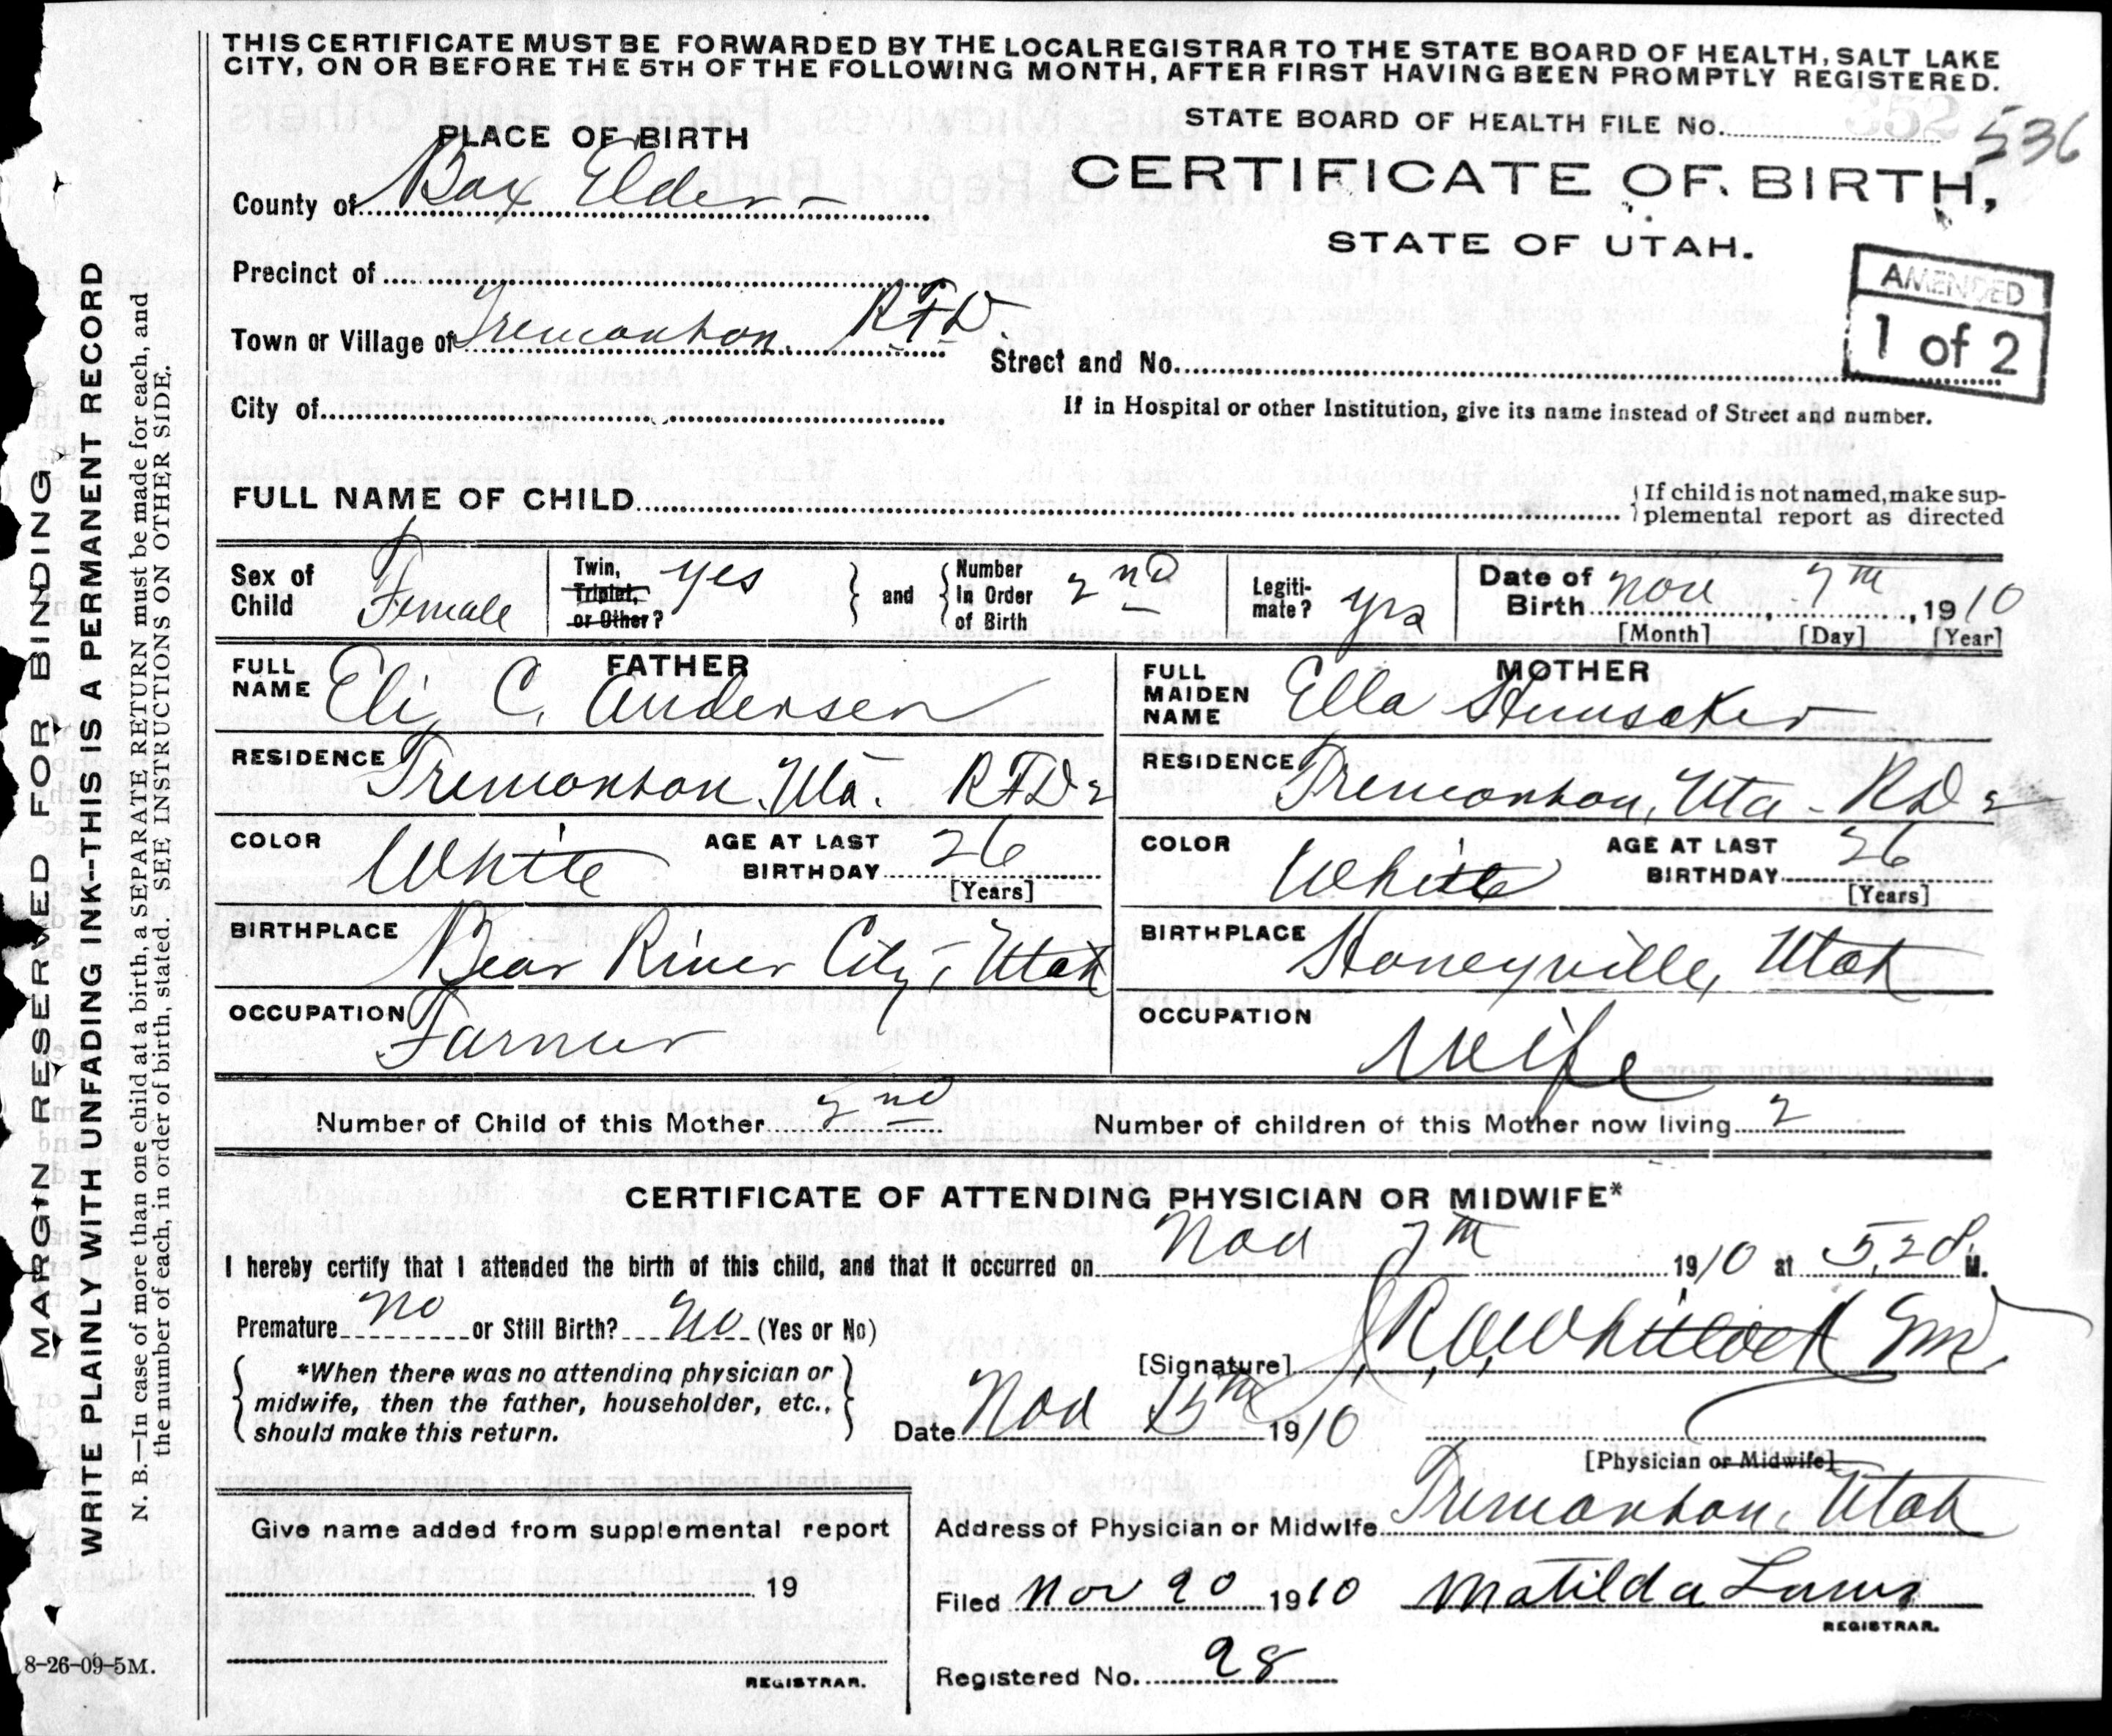 THIS CERTIFICATE MUST BE FORWARDED BY THE LOCAL REGISTRAR TO THE STATE BOARD OF HEALTH, SALT LAKE
CITY, ON OR BEFORE THE 5TH OF THE FOLLOWING MONTH, AFTER FIRST HAVING BEEN PROMPTLY REGISTERED.
STATE BOARD OF HEALTH FILE NO. 536
PLACE OF BIRTH
CERTIFICATE OF BIRTH,
STATE OF UTAH.
AMENDED
1 of 2
County of Box Elder
Precinct of
Town or Village of Tremonton. RFD.
Street and No.
City of
If in Hospital or other Institution, give its name instead of Street and number.
FULL NAME OF CHILD
If child is not named, make sup-
plemental report as directed
Sex of Child Female
Twin, Triplet, or Other? yes
and
Number In Order of Birth 2nd
Legiti-mate? yes
Date of Birth Nov 7th, 1910
[Month] [Day] [Year]
FATHER
FULL NAME Eli C. Andersen
RESIDENCE Tremonton. Uta. RFD 2
COLOR White
AGE AT LAST BIRTHDAY 26
[Years]
BIRTHPLACE Bear River City, Utah
OCCUPATION Farmer
MOTHER
FULL MAIDEN NAME Ella Hunsaker
RESIDENCE Tremonton, Uta - RD 2
COLOR White
AGE AT LAST BIRTHDAY 26
[Years]
BIRTHPLACE Honeyville, Utah
OCCUPATION Wife
Number of Child of this Mother 2nd
Number of children of this Mother now living 2
CERTIFICATE OF ATTENDING PHYSICIAN OR MIDWIFE*
I hereby certify that I attended the birth of this child, and that it occurred on Nov 7th 1910 at 5,20 P. M.
Premature No or Still Birth? No (Yes or No)
*When there was no attending physician or
midwife, then the father, householder, etc.,
should make this return.
[Signature] Whitlock MD.
Date Nov 15th 1910
[Physician or Midwife]
Give name added from supplemental report
19
REGISTRAR.
Address of Physician or Midwife Tremonton, Utah
Filed Nov 20 1910 Matilda
REGISTRAR.
Registered No. 28
MARGIN RESERVED FOR BINDING
WRITE PLAINLY WITH UNFADING INK--THIS IS A PERMANENT RECORD
N. B.—In case of more than one child at a birth, a SEPARATE RETURN must be made for each, and
the number of each, in order of birth, stated. SEE INSTRUCTIONS ON OTHER SIDE.
8-26-09-5M.